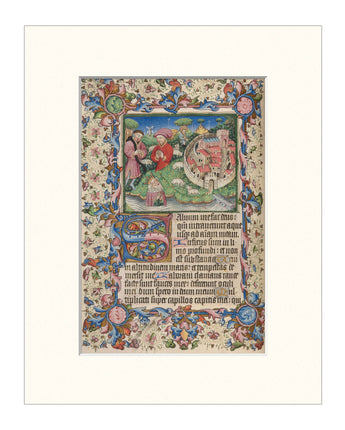 Saluum me fac deus:
qm̄ intrauerunt aque
usq; ad aīam meam.
Infixus sum in li
mo profundi: et non
est substantia. Veni
in altitudinem maris: et tempestas
demersit me. Laboraui clamans rauce
facte sunt fauces mee: defecerunt oculi
mei dum spero in deum meum. Mul
tiplicati super capillos capitis mei: qui